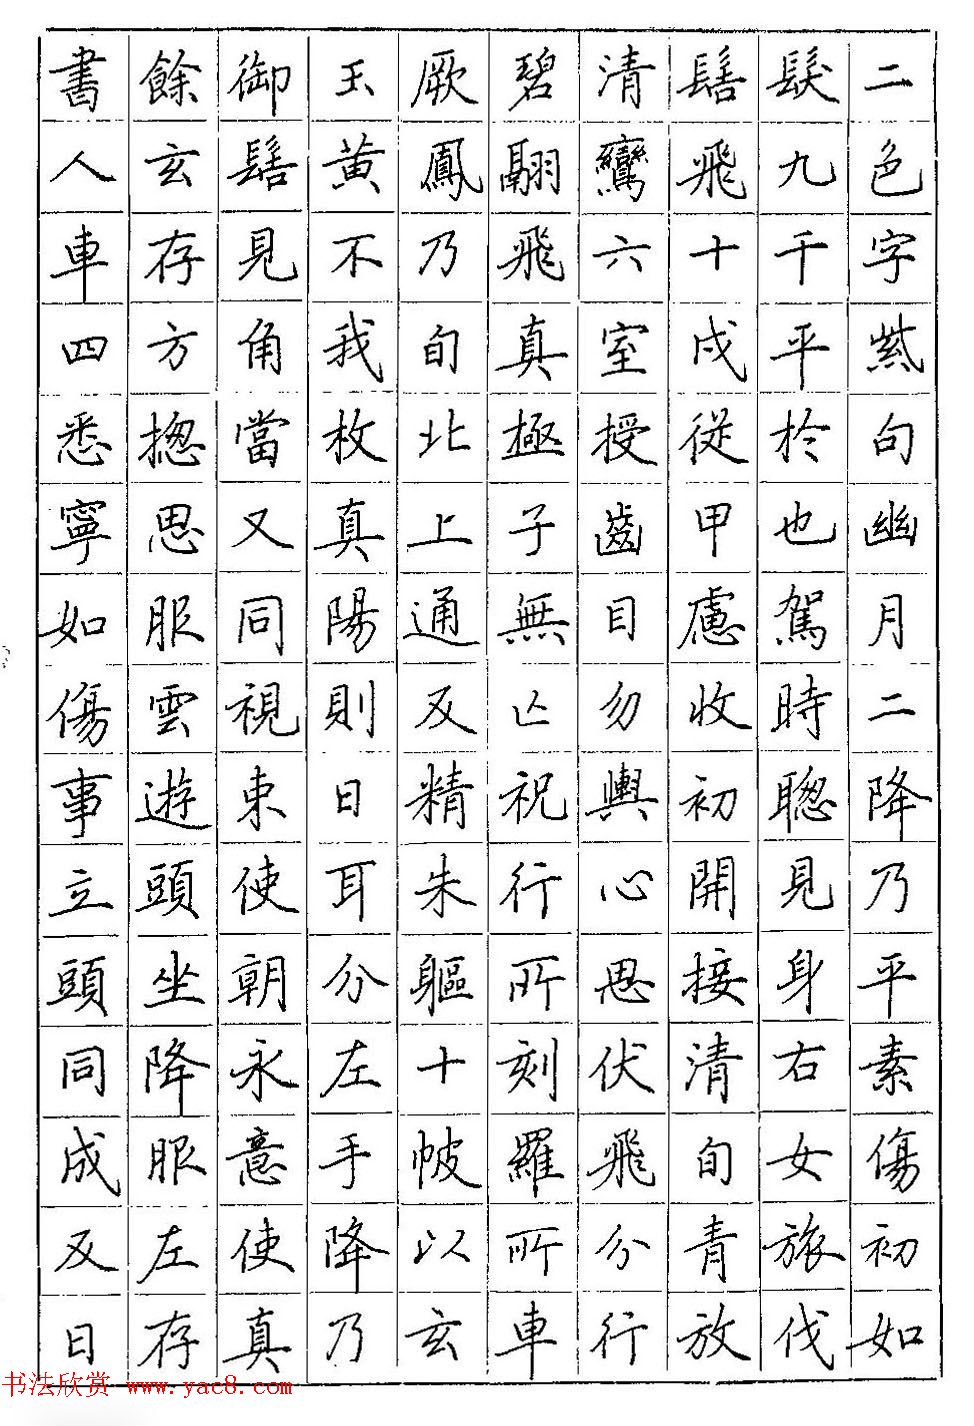 二色字紫句幽月二降乃平素傷初如
髮九千平於也駕時聰見身右女旅伐
髻飛十戌從甲慮收初開接清旬青放
清鸞六室授齒目勿輿心思伏飛分行
碧翮飛真極子無亡祝行所刻羅所車
厥鳳乃旬北上通及精朱軀十帔以玄
玉黄不我枚真陽則日耳分左手降乃
御髻見角當又同視東使朝永意使真
餘玄存方揔思服雲遊頭坐降服左存
書人車四悉寧如傷事立頭同成及日
书法欣赏 www.yac8.com